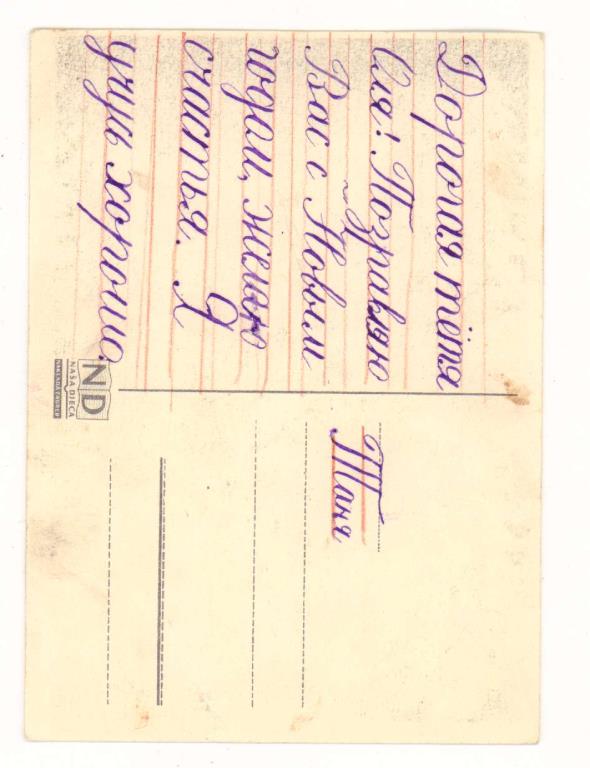 Дорогая тётя
Оля! Поздравляю
Вас с Новым
годом, желаю
счастья. Я
учусь хорошо.
Таня
ND
NAŠA DJECA
NAKLADA ZAGREB